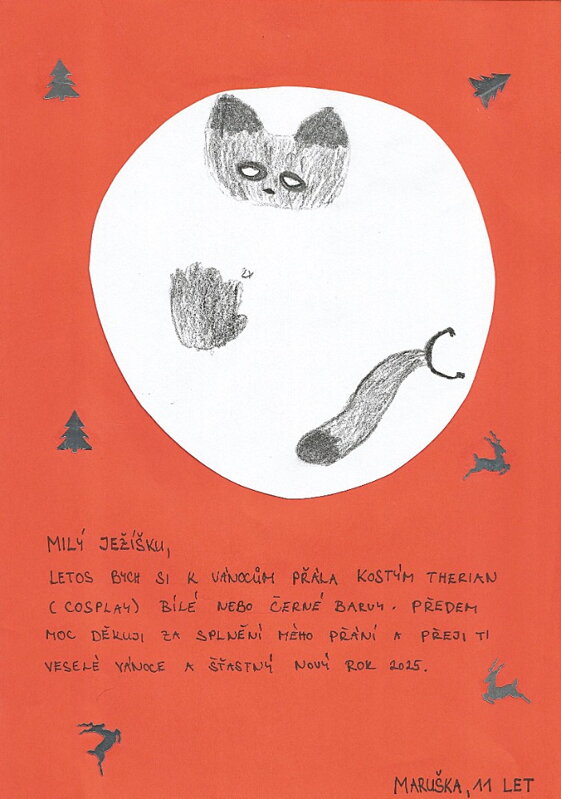 2x
MILÝ JEŽÍŠKU,
LETOS BYCH SI K VÁNOCŮM PŘÁLA KOSTÝM THERIAN
(COSPLAY) BÍLÉ NEBO ČERNÉ BARVY. PŘEDEM
MOC DĚKUJI ZA SPLNĚNÍ MÉHO PŘÁNÍ A PŘEJI TI
VESELÉ VÁNOCE A ŠŤASTNÝ NOVÝ ROK 2025.
MARUŠKA, 11 LET